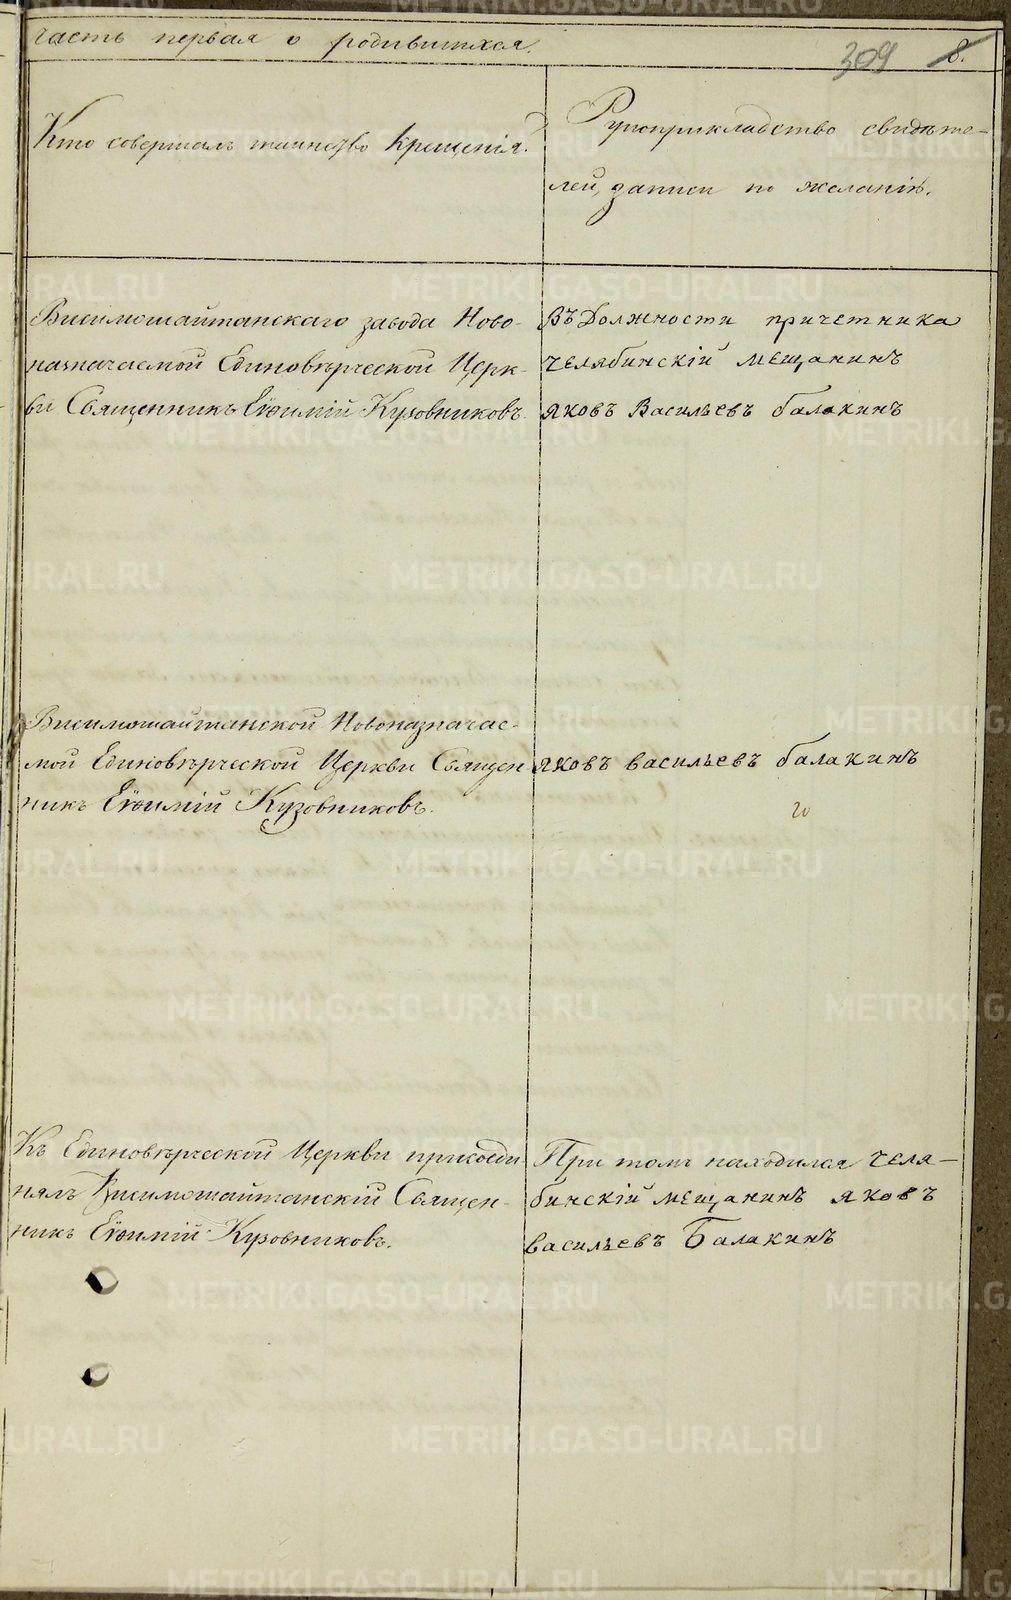 часть первая о родившихся.
309 8.
Кто совершалъ таинство Крещенія?
Рукоприкладство свидѣте-
лей, записи по желанію.
Висимошайтанскаго завода Ново-
назначаемой Единовѣрческой Церк-
ви Священникъ Евѳимій Кузовниковъ.
Въ Должности причетника
челябинскій мещанинъ
яковъ Васильевъ балакинъ
Висимошайтанской Новоназначае-
мой Единовѣрческой Церкви Священ-
никъ Евѳимій Кузовниковъ.
яковъ васильевъ балакинъ
Къ Единовѣрческой Церкви присоеди-
нялъ Висимошайтанскій Священ-
никъ Евѳимій Кузовниковъ.
При томъ находился челя-
бинскій мещанинъ яковъ
васильевъ Балакинъ
METRIKI.GASO-URAL.RU